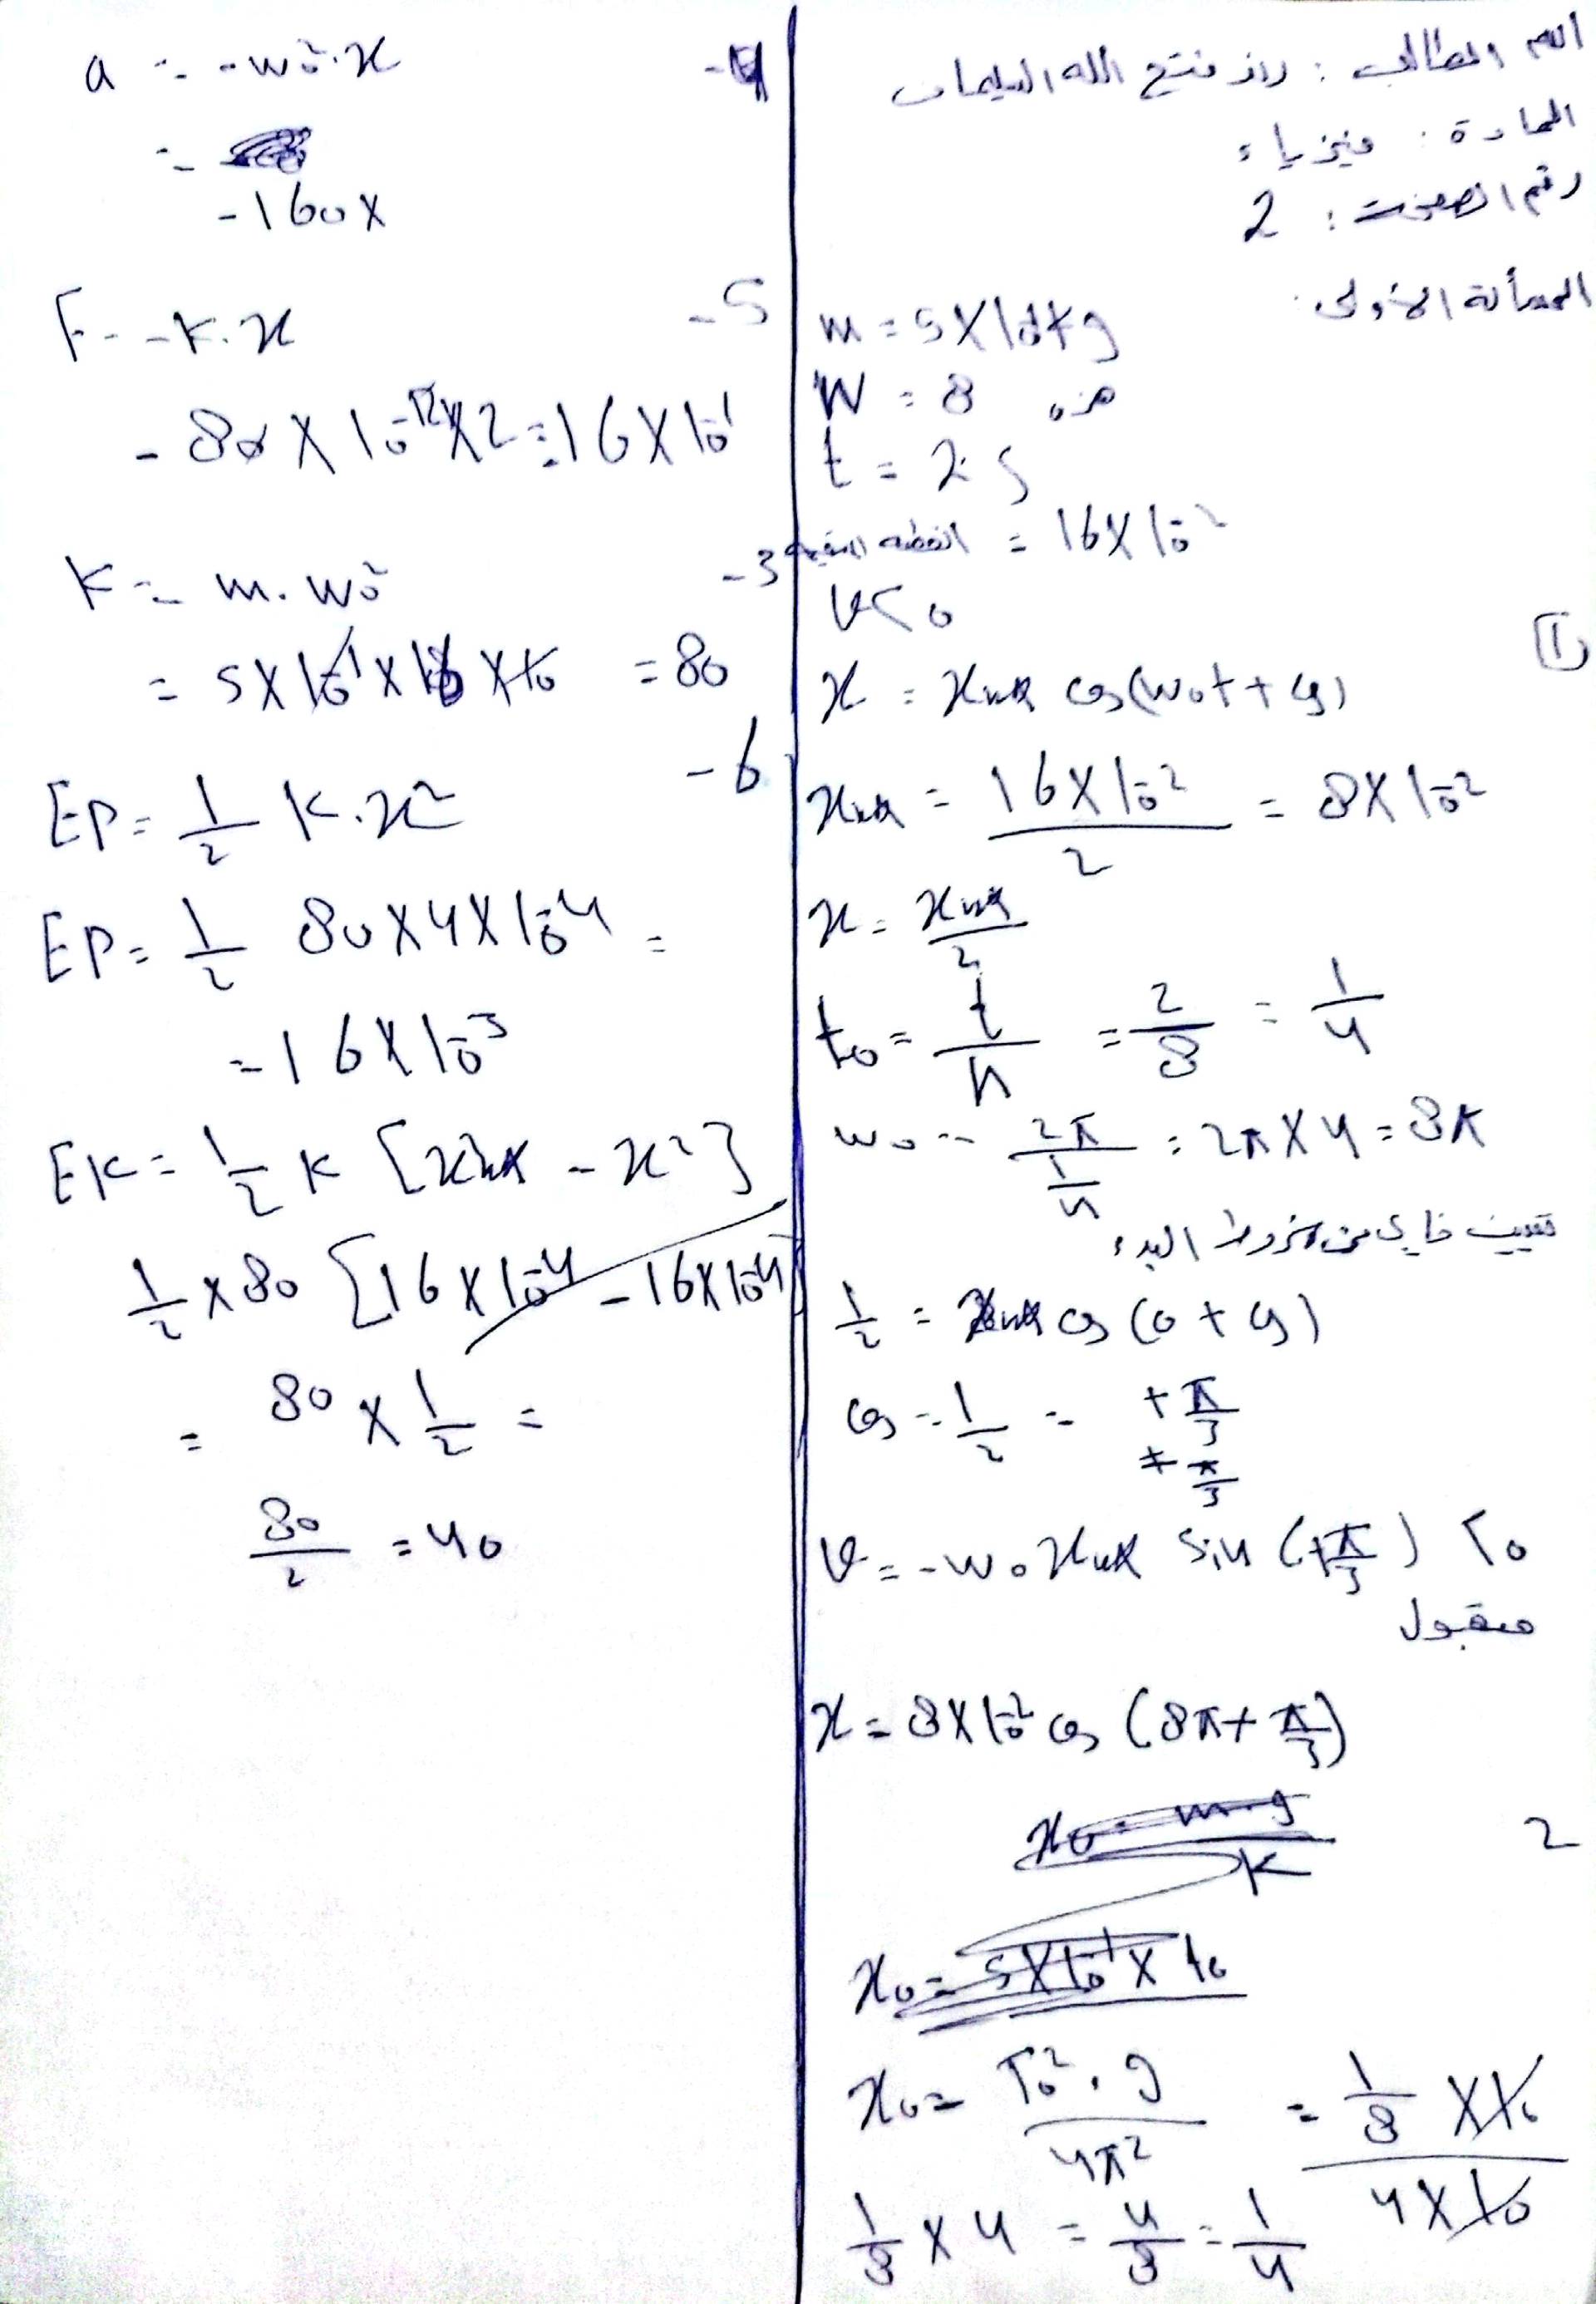 اسم الطالب : راند فتح الله السليمان
المادة : فيزياء
رقم الصفحة : 2
المسألة الأولى
m = 5X10⁻¹kg
W = 8 هزه
t = 2 s
القطعة المستقيمة = 16X10⁻²
v<0
①
x = xmax cos(w0t + φ)
xmax = 16X10⁻² / 2 = 8X10⁻²
x = xmax / 2
t0 = t / n = 2/8 = 1/4
w0 = 2π / (1/4) = 2π X 4 = 8π
نعين φ من شروط البدء
1/2 = xmax cos (0 + φ)
cos = 1/2 = + π/3
π/3
v = -w0 xmax sin (+π/3) <0
مقبول
x = 8X10⁻² cos (8π + π/3)
2
x0 = m.g / K
x0 = 5X10⁻¹ X 10
x0 = T0² . g / 4π² = 1/8 X 10 / 4 X 10
1/8 X 4 = 4/8 = 1/4
-4
a = -w0².x
=
-160x
-5
F = -K.x
- 80 X 10⁻² X 2 = 16 X 10⁻¹
-3
K = m. w0²
= 5X10⁻¹ X 16 X 10 = 80
-6
EP = 1/2 K.x²
EP = 1/2 80 X 4 X 10⁻⁴ =
= 16 X 10⁻³
EK = 1/2 K [x²max - x²]
1/2 X 80 [16 X 10⁻⁴ - 16X10⁻⁴]
= 80 X 1/2 =
80/2 = 40